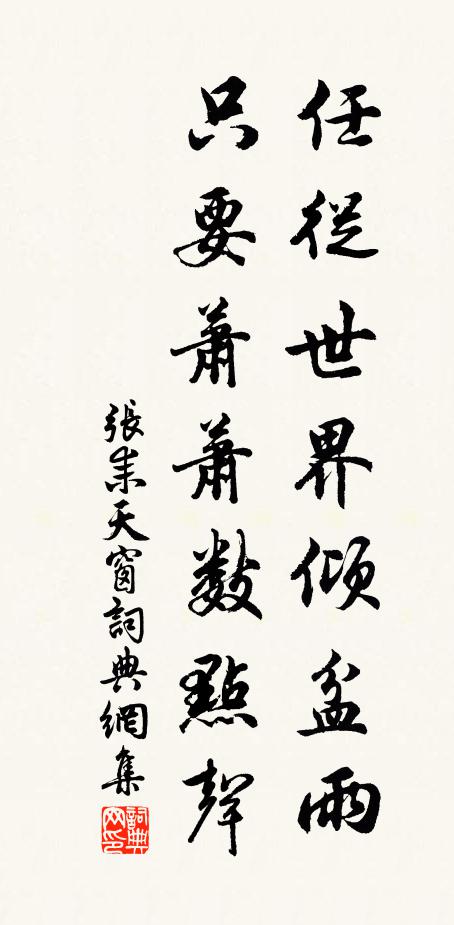 任從世界傾盆雨
只要蕭蕭數點聲
張耒天窗詞典網集
詞典網印